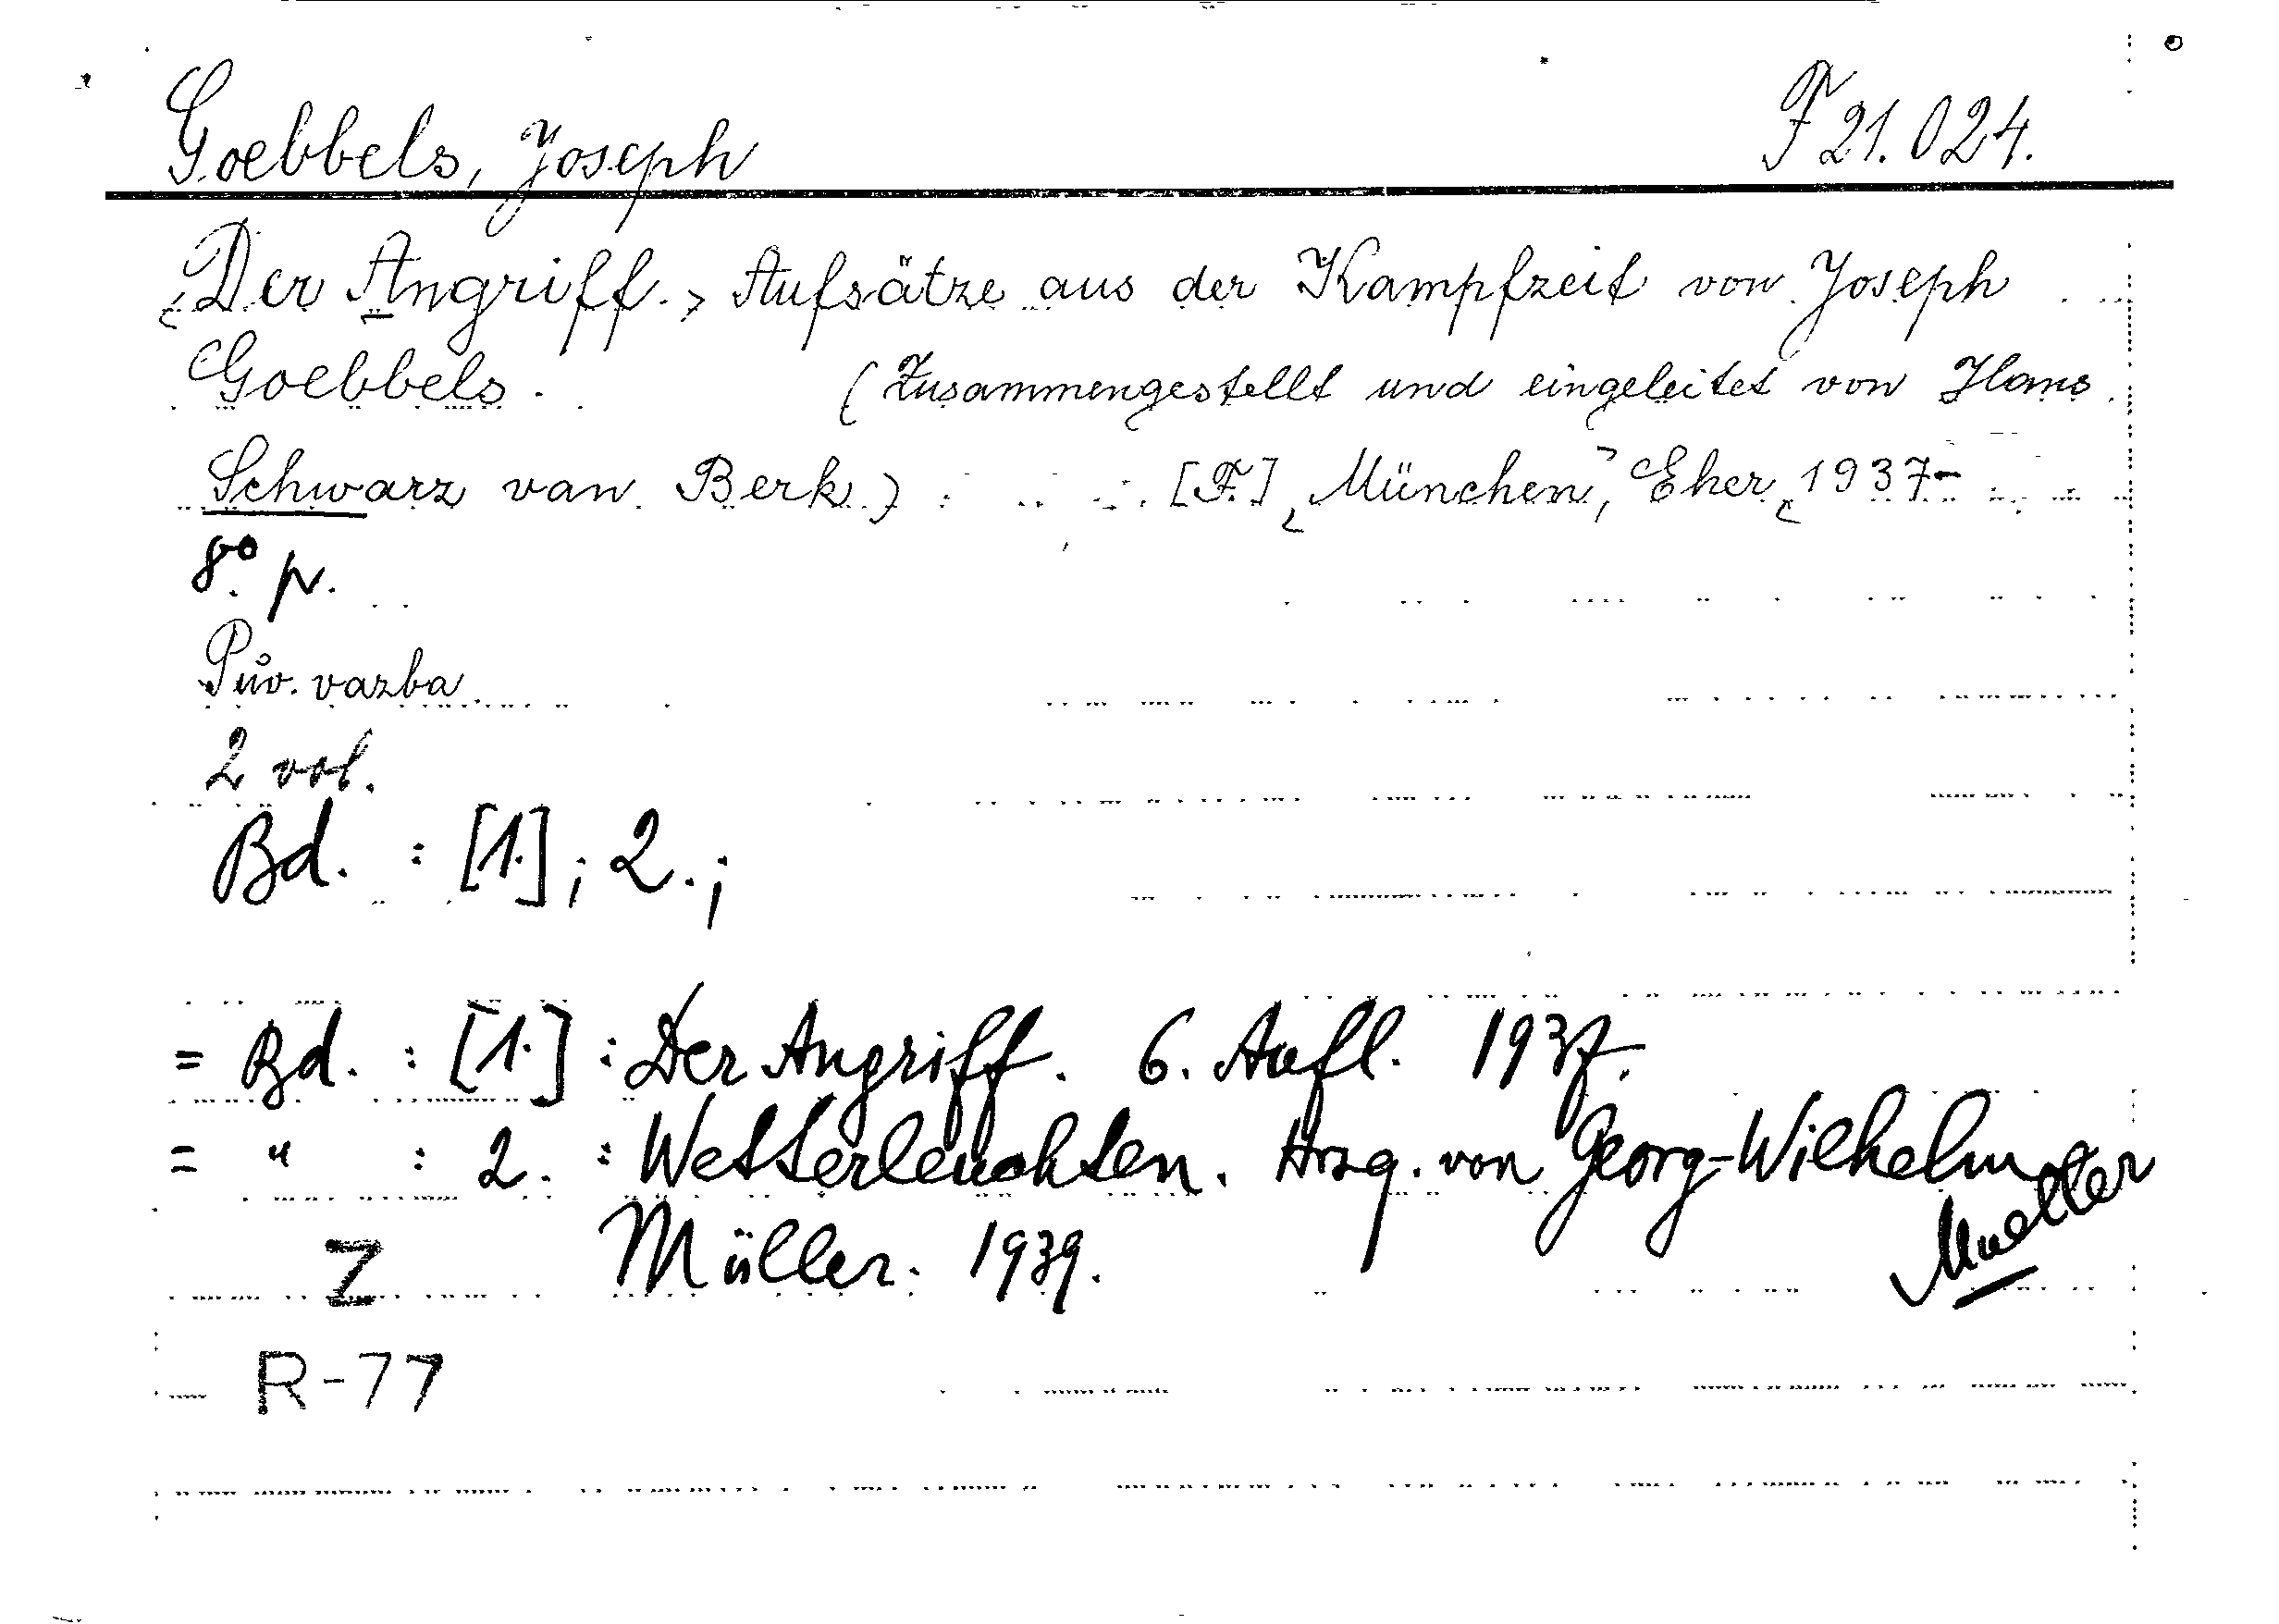 Goebbels, Joseph F 21.024.
<Der Angriff.> Aufsätze aus der Kampfzeit von Joseph
Goebbels. (Zusammengestellt und eingeleitet von Hans
Schwarz van Berk.) [F.] München, Eher, 1937-
8° p.
Pův. vazba
2 vol.
Bd. : [1.]; 2.;
= Bd. : [1.] : Der Angriff. 6. Aufl. 1937.
= " : 2. : Wetterleuchten. Hrsg. von Georg-Wilhelm
Müller. 1939. Mueller
Z
R-77